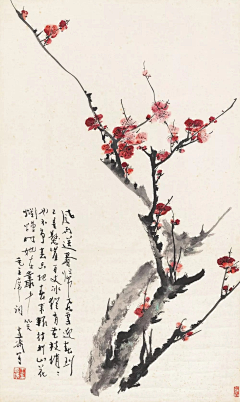 風雨送春歸飛雪迎春到
已是懸崖百丈冰猶有花枝俏
也不爭春只把春來報待到山花
爛漫時她在叢中笑
毛主席詞